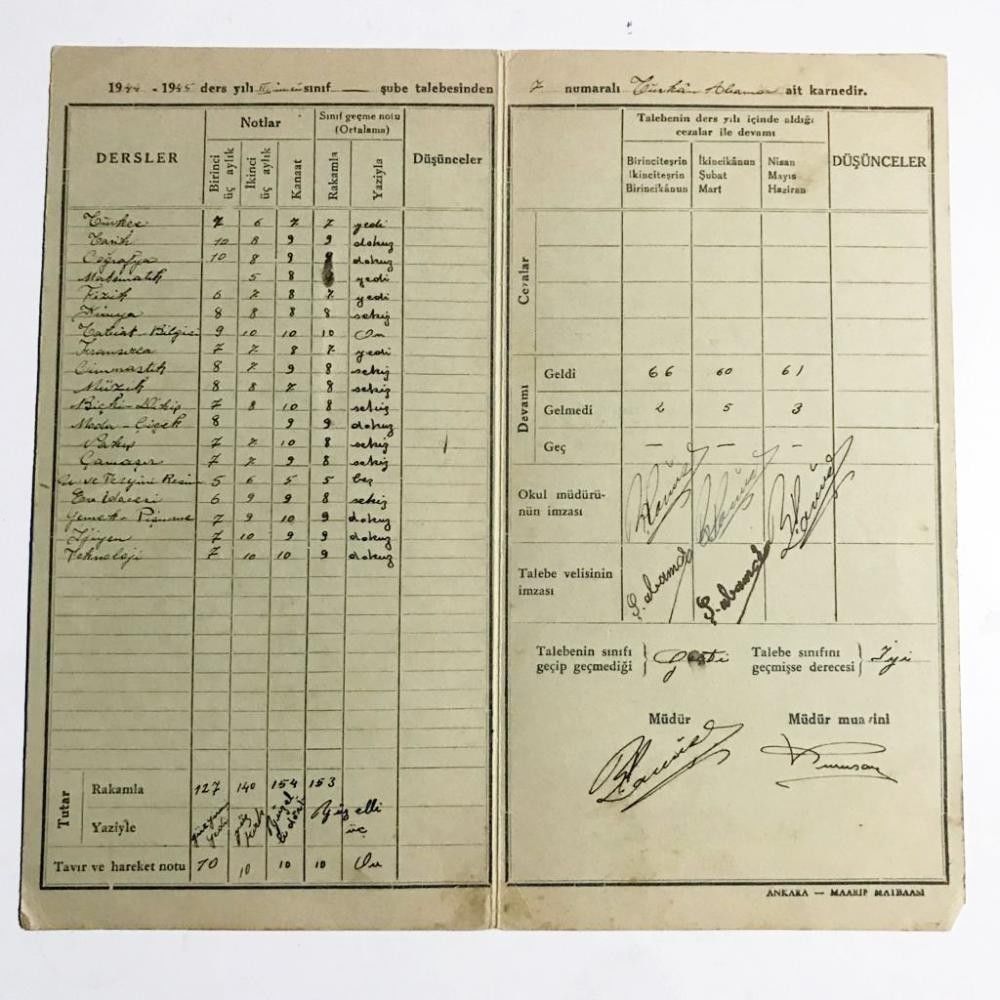 1944 - 1945 ders yılı sınıf — şube talebesinden
DERSLER
Notlar
Sınıf geçme notu
(Ortalama)
Düşünceler
Birinci üç aylık
İkinci üç aylık
Kanaat
Rakamla
Yazıyla
Türkçe 7 6 7 7 yedi
Tarih 10 8 9 9 dokuz
Coğrafya 10 8 9 9 dokuz
Matematik 5 8 yedi
Fizik 6 7 8 7 yedi
Kimya 8 8 8 8 sekiz
Tabiat Bilgisi 9 10 10 10 On
Fransızca 7 7 8 7 yedi
Cimnastik 8 7 9 8 sekiz
Müzik 8 8 7 8 sekiz
Biçki-Dikiş 7 8 10 8 sekiz
Moda-Çiçek 8 9 9 dokuz
Nakış 7 7 10 8 sekiz
Çamaşır 7 7 9 8 sekiz
ve Tezyini Resim 5 6 5 5 beş
Ev idaresi 6 9 9 8 sekiz
Yemek-Pişirme 7 9 10 9 dokuz
Ijiyen 7 10 9 9 dokuz
Teknoloji 7 10 10 9 dokuz
Tutar
Rakamla 127 140 154 153
Yaziyle yüzyirmi yedi yüz kırk yüzel li dört Yüz elli üç
Tavır ve hareket notu 10 10 10 10 On
7 numaralı Türkân ait karnedir.
Talebenin ders yılı içinde aldığı
cezalar ile devamı
DÜŞÜNCELER
Birinciteşrin
İkinciteşrin
Birincikânun
İkincikânun
Şubat
Mart
Nisan
Mayıs
Haziran
Cezalar
Devamı
Geldi 66 60 61
Gelmedi 2 5 3
Geç — — —
Okul müdürü-
nün imzası
Talebe velisinin
imzası
Talebenin sınıfı
geçip geçmediği } Geçti
Talebe sınıfını
geçmişse derecesi } İyi
Müdür Müdür muavini
ANKARA — MAARİF MATBAASI